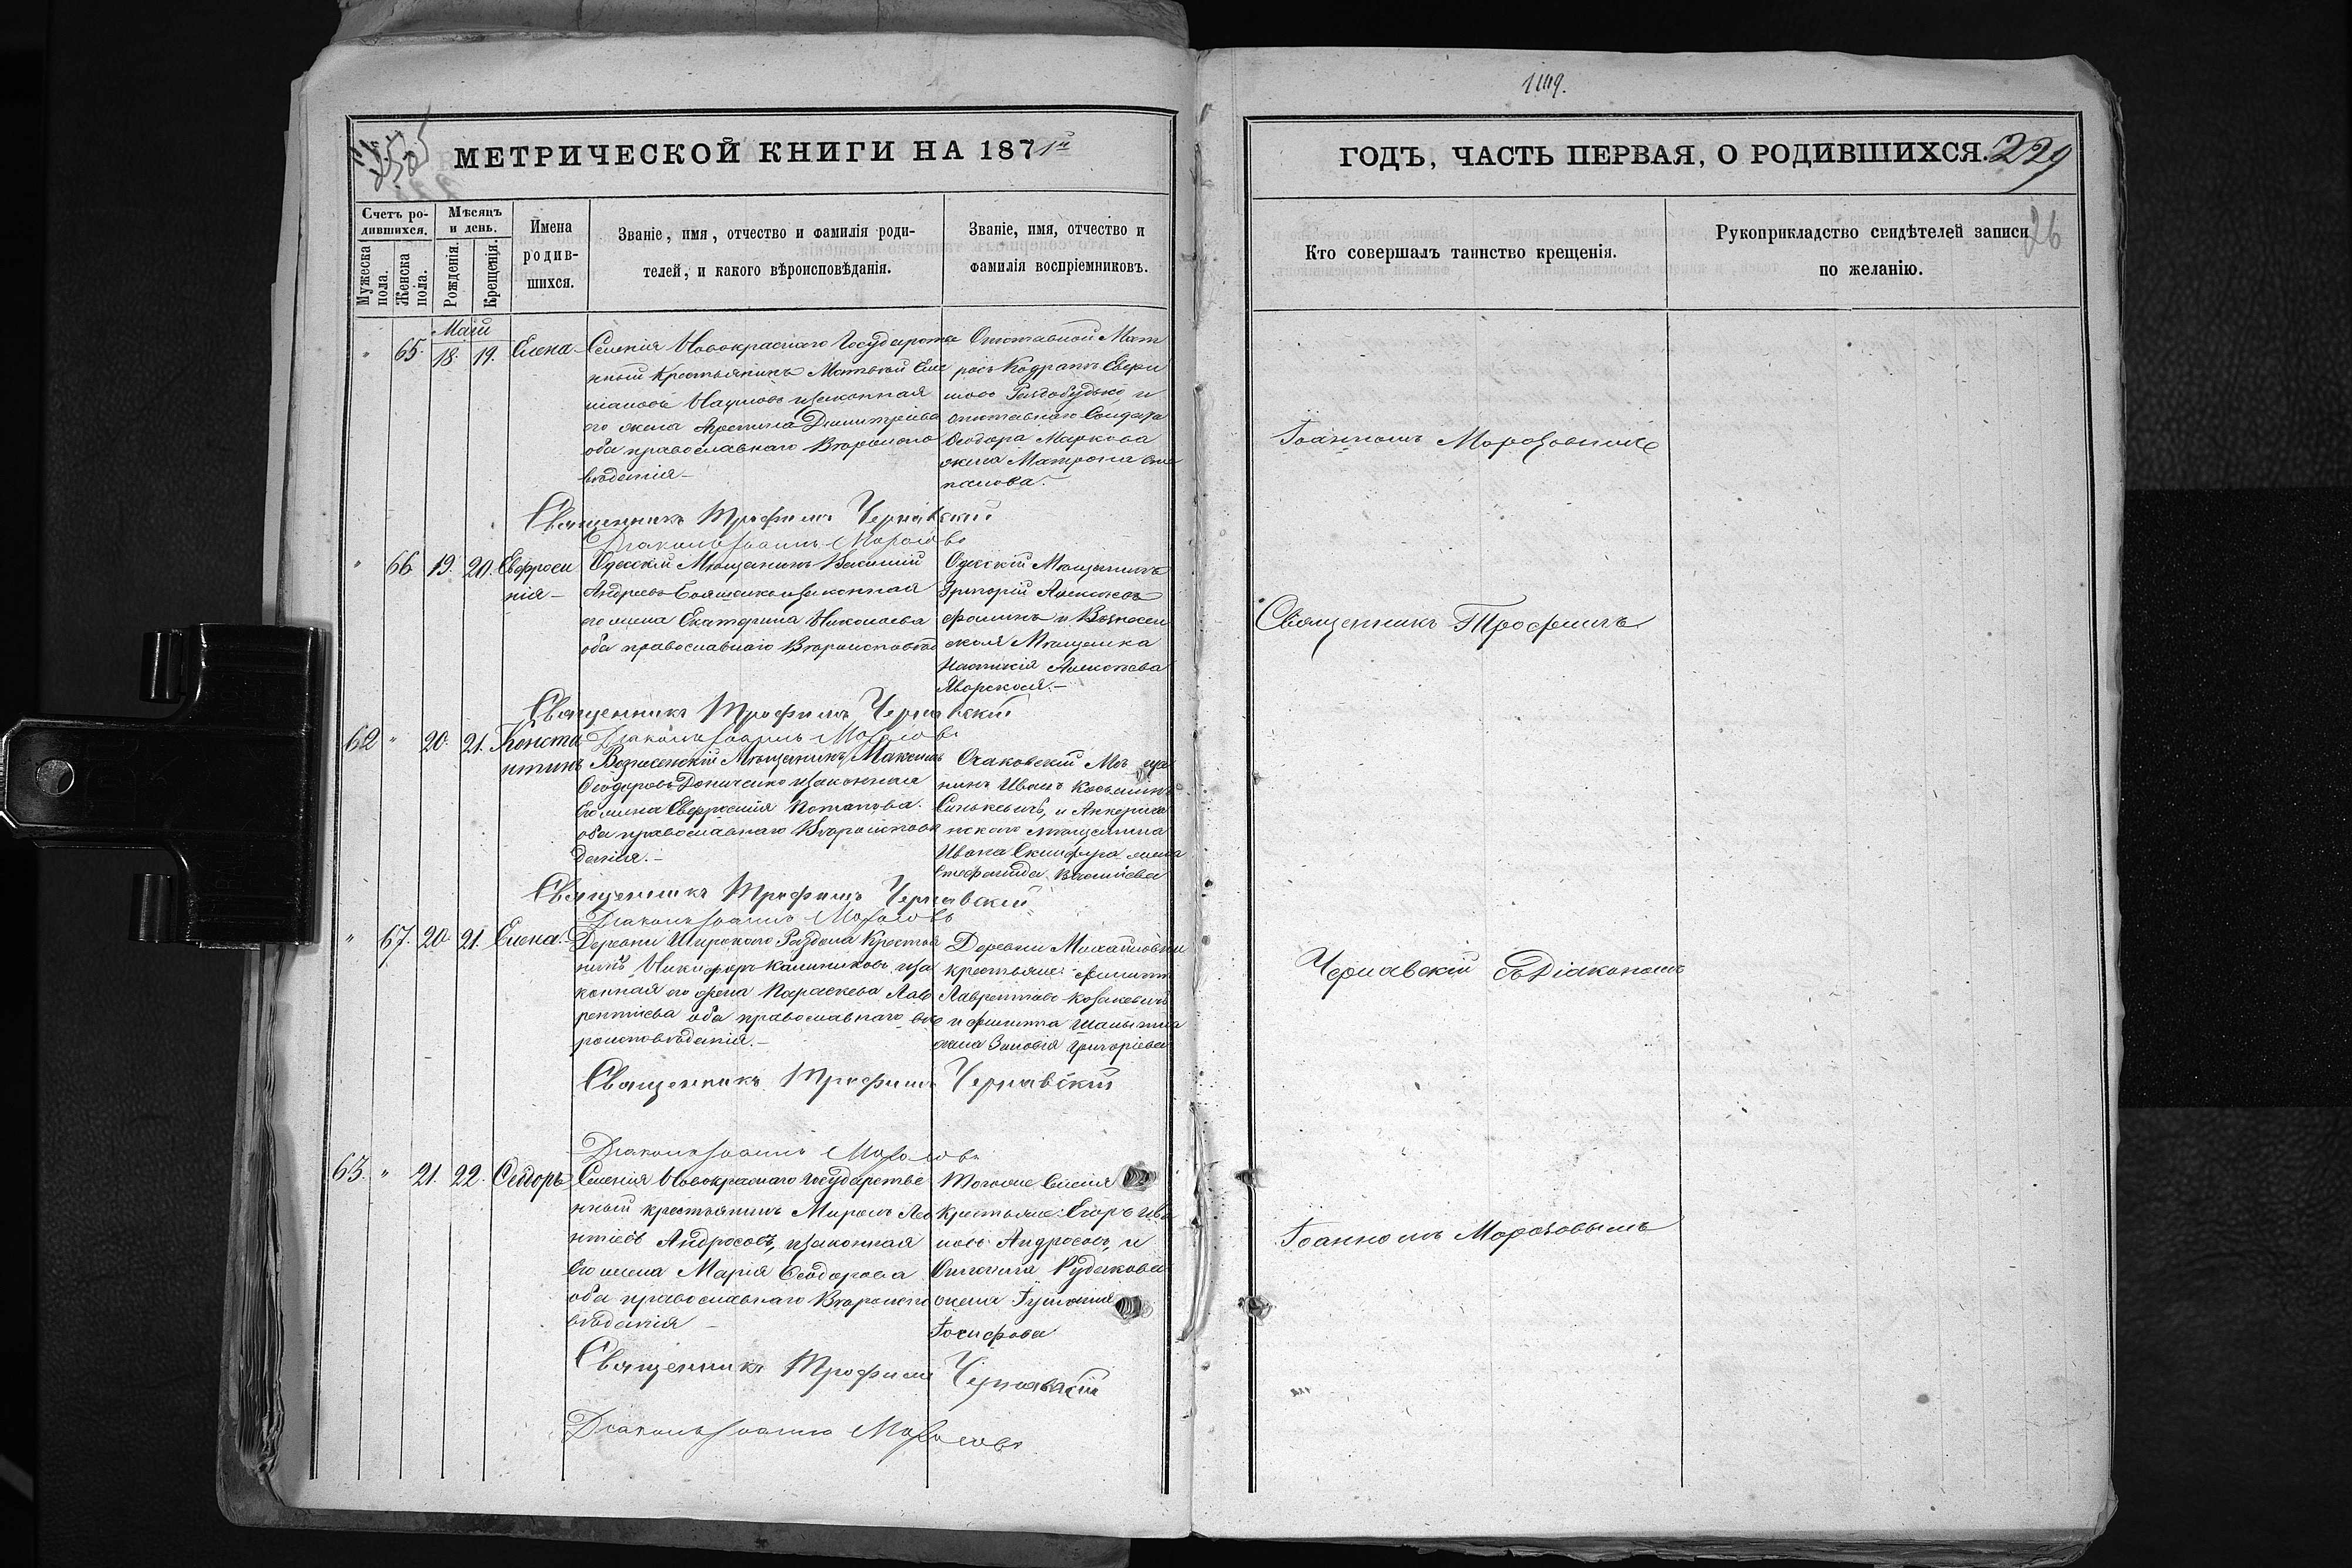 1149.
МЕТРИЧЕСКОЙ КНИГИ НА 1871й
ГОДЪ, ЧАСТЬ ПЕРВАЯ, О РОДИВШИХСЯ.
229
26
Счетъ ро-
дившихся.
Мужеска
пола.
Женска
пола.
Мѣсяцъ
и день.
Рожденія.
Крещенія.
Имена
родив-
шихся.
Званіе, имя, отчество и фамилія роди-
телей, и какого вѣроисповѣданія.
Званіе, имя, отчество и
фамилія воспріемниковъ.
Кто совершалъ таинство крещенія.
Рукоприкладство свидѣтелей записи
по желанію.
Маій
" 65. 18. 19. Елена.
Селенія Новокраснаго Государстве
нный Крестьянинъ
Наумовъ изаконная
его жена Димитріева
оба православнаго Вѣроиспо
вѣданія-
Отставной Мат
росъ Кодратъ
и
отставнаго Солдата
Ѳеодора Маркова
жена Матрона Сте
панова.
Священникъ Трофимъ Чернявский
Диаконъ Іоаннъ Морозовъ
" 66 19. 20. Евфроси
нія-
Одесскій Мѣщанинъ Василий
Андреевъ изаконная
его жена Екатерина Николаева
оба православнаго Вѣроисповѣд
Одесскій Мѣщанинъ
Григорій Алексѣевъ
и Вознесен
ская Мѣщанка
Алексѣева
Яворская.-
Священникъ Трофимъ Чернявский
Диаконъ Іоаннъ Морозовъ
62 " 20. 21. Конста
нтинъ
Вознесенскій Мѣщанинъ Максимъ
Ѳеодоровъ изаконная
Его жена Евфросинія Потапова.
оба православнаго Вѣроисповѣ
данія.-
Очаковскій Мѣ ща
нинъ Иванъ Косьминъ
и
мѣщанина
Ивана жена
Стефанида Васильева
Священникъ Трофимъ Чернявский
Диаконъ Іоаннъ Морозовъ
" 67. 20 21. Елена.
Деревни Широкаго Раздола Крестья
нинъ Никифоръ Калиниковъ иза
конная его жена Параскева Лав
рентіева оба православнаго вѣ
роисповѣданія.-
Деревни Михайловки
крестьяне: Филиппъ
Лаврентіевъ
и Филиппа
жена Зиновія Григоріева
Священникъ Трофимъ Чернявский
Диаконъ Іоаннъ Морозовъ
63. " 21. 22. Ѳеодоръ
Селенія Новокраснаго Государстве
нный крестьянинъ Миронъ Лео
нтіевъ Андросовъ, изаконная
Его жена Марія Ѳеодорова
оба православнаго Вѣроиспо
вѣданія -
Тогоже Селенія
Крестьяне: Егоръ Ива
новъ Андросовъ, и
Рудакова
жена Гуліанія
Іосифова
Священникъ Трофимъ Чернявский
Диаконъ Іоаннъ Морозовъ
Іоанномъ Морозовымъ
Священникъ Трофимъ
Чернавскій съ Діакономъ
Іоанномъ Морозовымъ